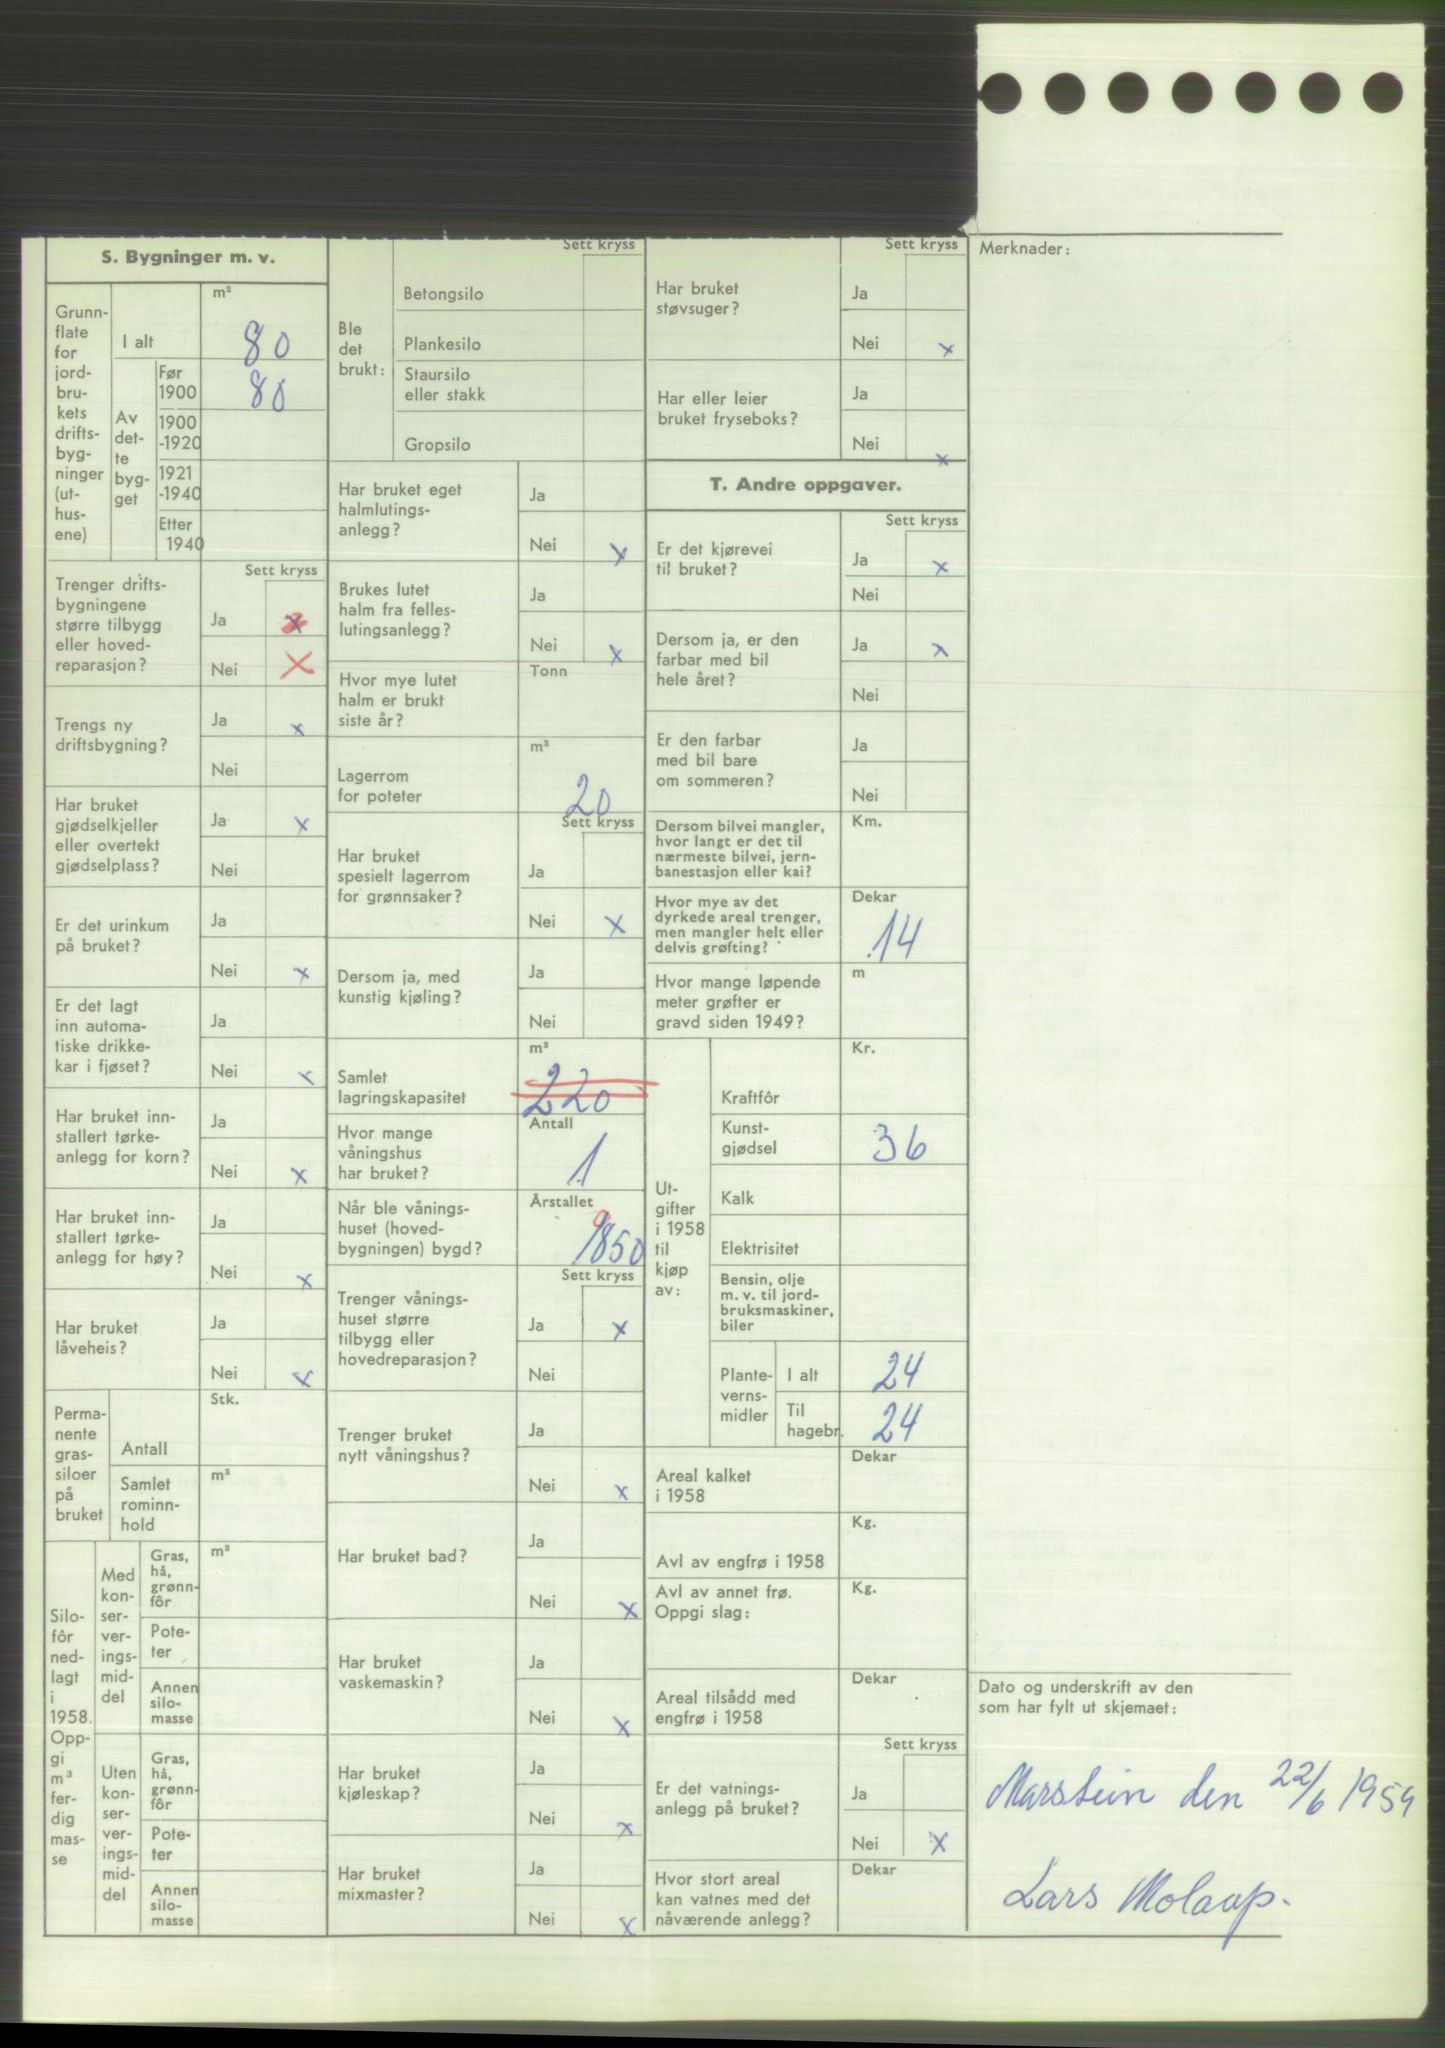 S. Bygninger m. v.
Grunn-
flate
for
jord-
bru-
kets
drifts-
byg-
ninger
(ut-
hus-
ene)
I alt
m²
80
Av
det-
te
byg-
get
Før
1900
80
1900
-1920
1921
-1940
Etter
1940
Sett kryss
Trenger drifts-
bygningene
større tilbygg
eller hoved-
reparasjon?
Ja x
Nei X
Trengs ny
driftsbygning?
Ja x
Nei
Har bruket
gjødselkjeller
eller overtekt
gjødselplass?
Ja x
Nei
Er det urinkum
på bruket?
Ja
Nei x
Er det lagt
inn automa-
tiske drikke-
kar i fjøset?
Ja
Nei x
Har bruket inn-
stallert tørke-
anlegg for korn?
Ja
Nei x
Har bruket inn-
stallert tørke-
anlegg for høy?
Ja
Nei x
Har bruket
låveheis?
Ja
Nei x
Perma-
nente
gras-
siloer
på
bruket
Antall
Stk.
Samlet
rominn-
hold
m³
Silo-
fôr
ned-
lagt
i
1958.
Opp-
gi
m³
fer-
dig
mas-
se
Med
kon-
ser-
ver-
ings-
mid-
del
Gras,
hå,
grønn-
fôr
m³
Pote-
ter
Annen
silo-
masse
Uten
kon-
ser-
ver-
ings-
mid-
del
Gras,
hå,
grønn-
fôr
Pote-
ter
Annen
silo-
masse
Sett kryss
Ble
det
brukt:
Betongsilo
Plankesilo
Staursilo
eller stakk
Gropsilo
Har bruket eget
halmlutings-
anlegg?
Ja
Nei x
Brukes lutet
halm fra felles-
lutingsanlegg?
Ja
Nei x
Hvor mye lutet
halm er brukt
siste år?
Tonn
Lagerrom
for poteter
m³
20
Sett kryss
Har bruket
spesielt lagerrom
for grønnsaker?
Ja
Nei x
Dersom ja, med
kunstig kjøling?
Ja
Nei
Samlet
lagringskapasitet
m³
220
Hvor mange
våningshus
har bruket?
Antall
1
Når ble vånings-
huset (hoved-
bygningen) bygd?
Årstallet
9
1850
Sett kryss
Trenger vånings-
huset større
tilbygg eller
hovedreparasjon?
Ja x
Nei
Trenger bruket
nytt våningshus?
Ja
Nei x
Har bruket bad?
Ja
Nei x
Har bruket
vaskemaskin?
Ja
Nei x
Har bruket
kjøleskap?
Ja
Nei x
Har bruket
mixmaster?
Ja
Nei x
Sett kryss
Har bruket
støvsuger?
Ja
Nei x
Har eller leier
bruket fryseboks?
Ja
Nei x
T. Andre oppgaver.
Sett kryss
Er det kjørevei
til bruket?
Ja x
Nei
Dersom ja, er den
farbar med bil
hele året?
Ja x
Nei
Er den farbar
med bil bare
om sommeren?
Ja
Nei
Dersom bilvei mangler,
hvor langt er det til
nærmeste bilvei, jern-
banestasjon eller kai?
Km.
Hvor mye av det
dyrkede areal trenger,
men mangler helt eller
delvis grøfting?
Dekar
14
Hvor mange løpende
meter grøfter er
gravd siden 1949?
m
Ut-
gifter
i 1958
til
kjøp
av:
Kraftfôr
Kr.
Kunst-
gjødsel
36
Kalk
Elektrisitet
Bensin, olje
m. v. til jord-
bruksmaskiner,
biler
Plante-
verns-
midler
I alt
24
Til
hagebr.
24
Areal kalket
i 1958
Dekar
Avl av engfrø i 1958
Kg.
Avl av annet frø.
Oppgi slag:
Kg.
Areal tilsådd med
engfrø i 1958
Dekar
Sett kryss
Er det vatnings-
anlegg på bruket?
Ja
Nei X
Hvor stort areal
kan vatnes med det
nåværende anlegg?
Dekar
Merknader:
Dato og underskrift av den
som har fylt ut skjemaet:
Marstein den 22/6 1959
Lars